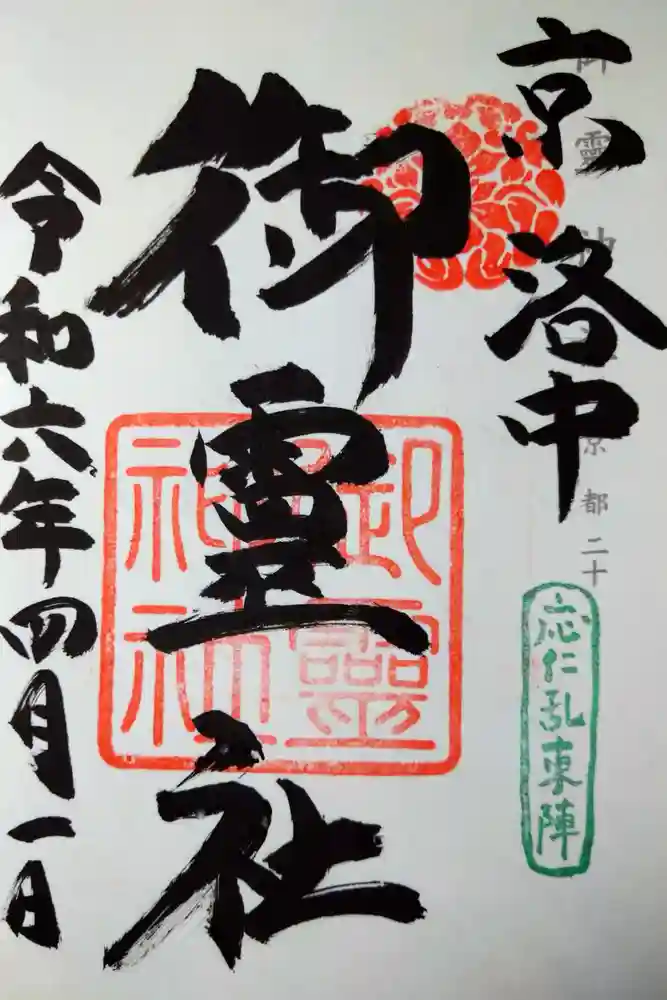 京洛中
御霊社
令和六年四月一日
御靈神社
京都二十
御靈神社
応仁乱東陣